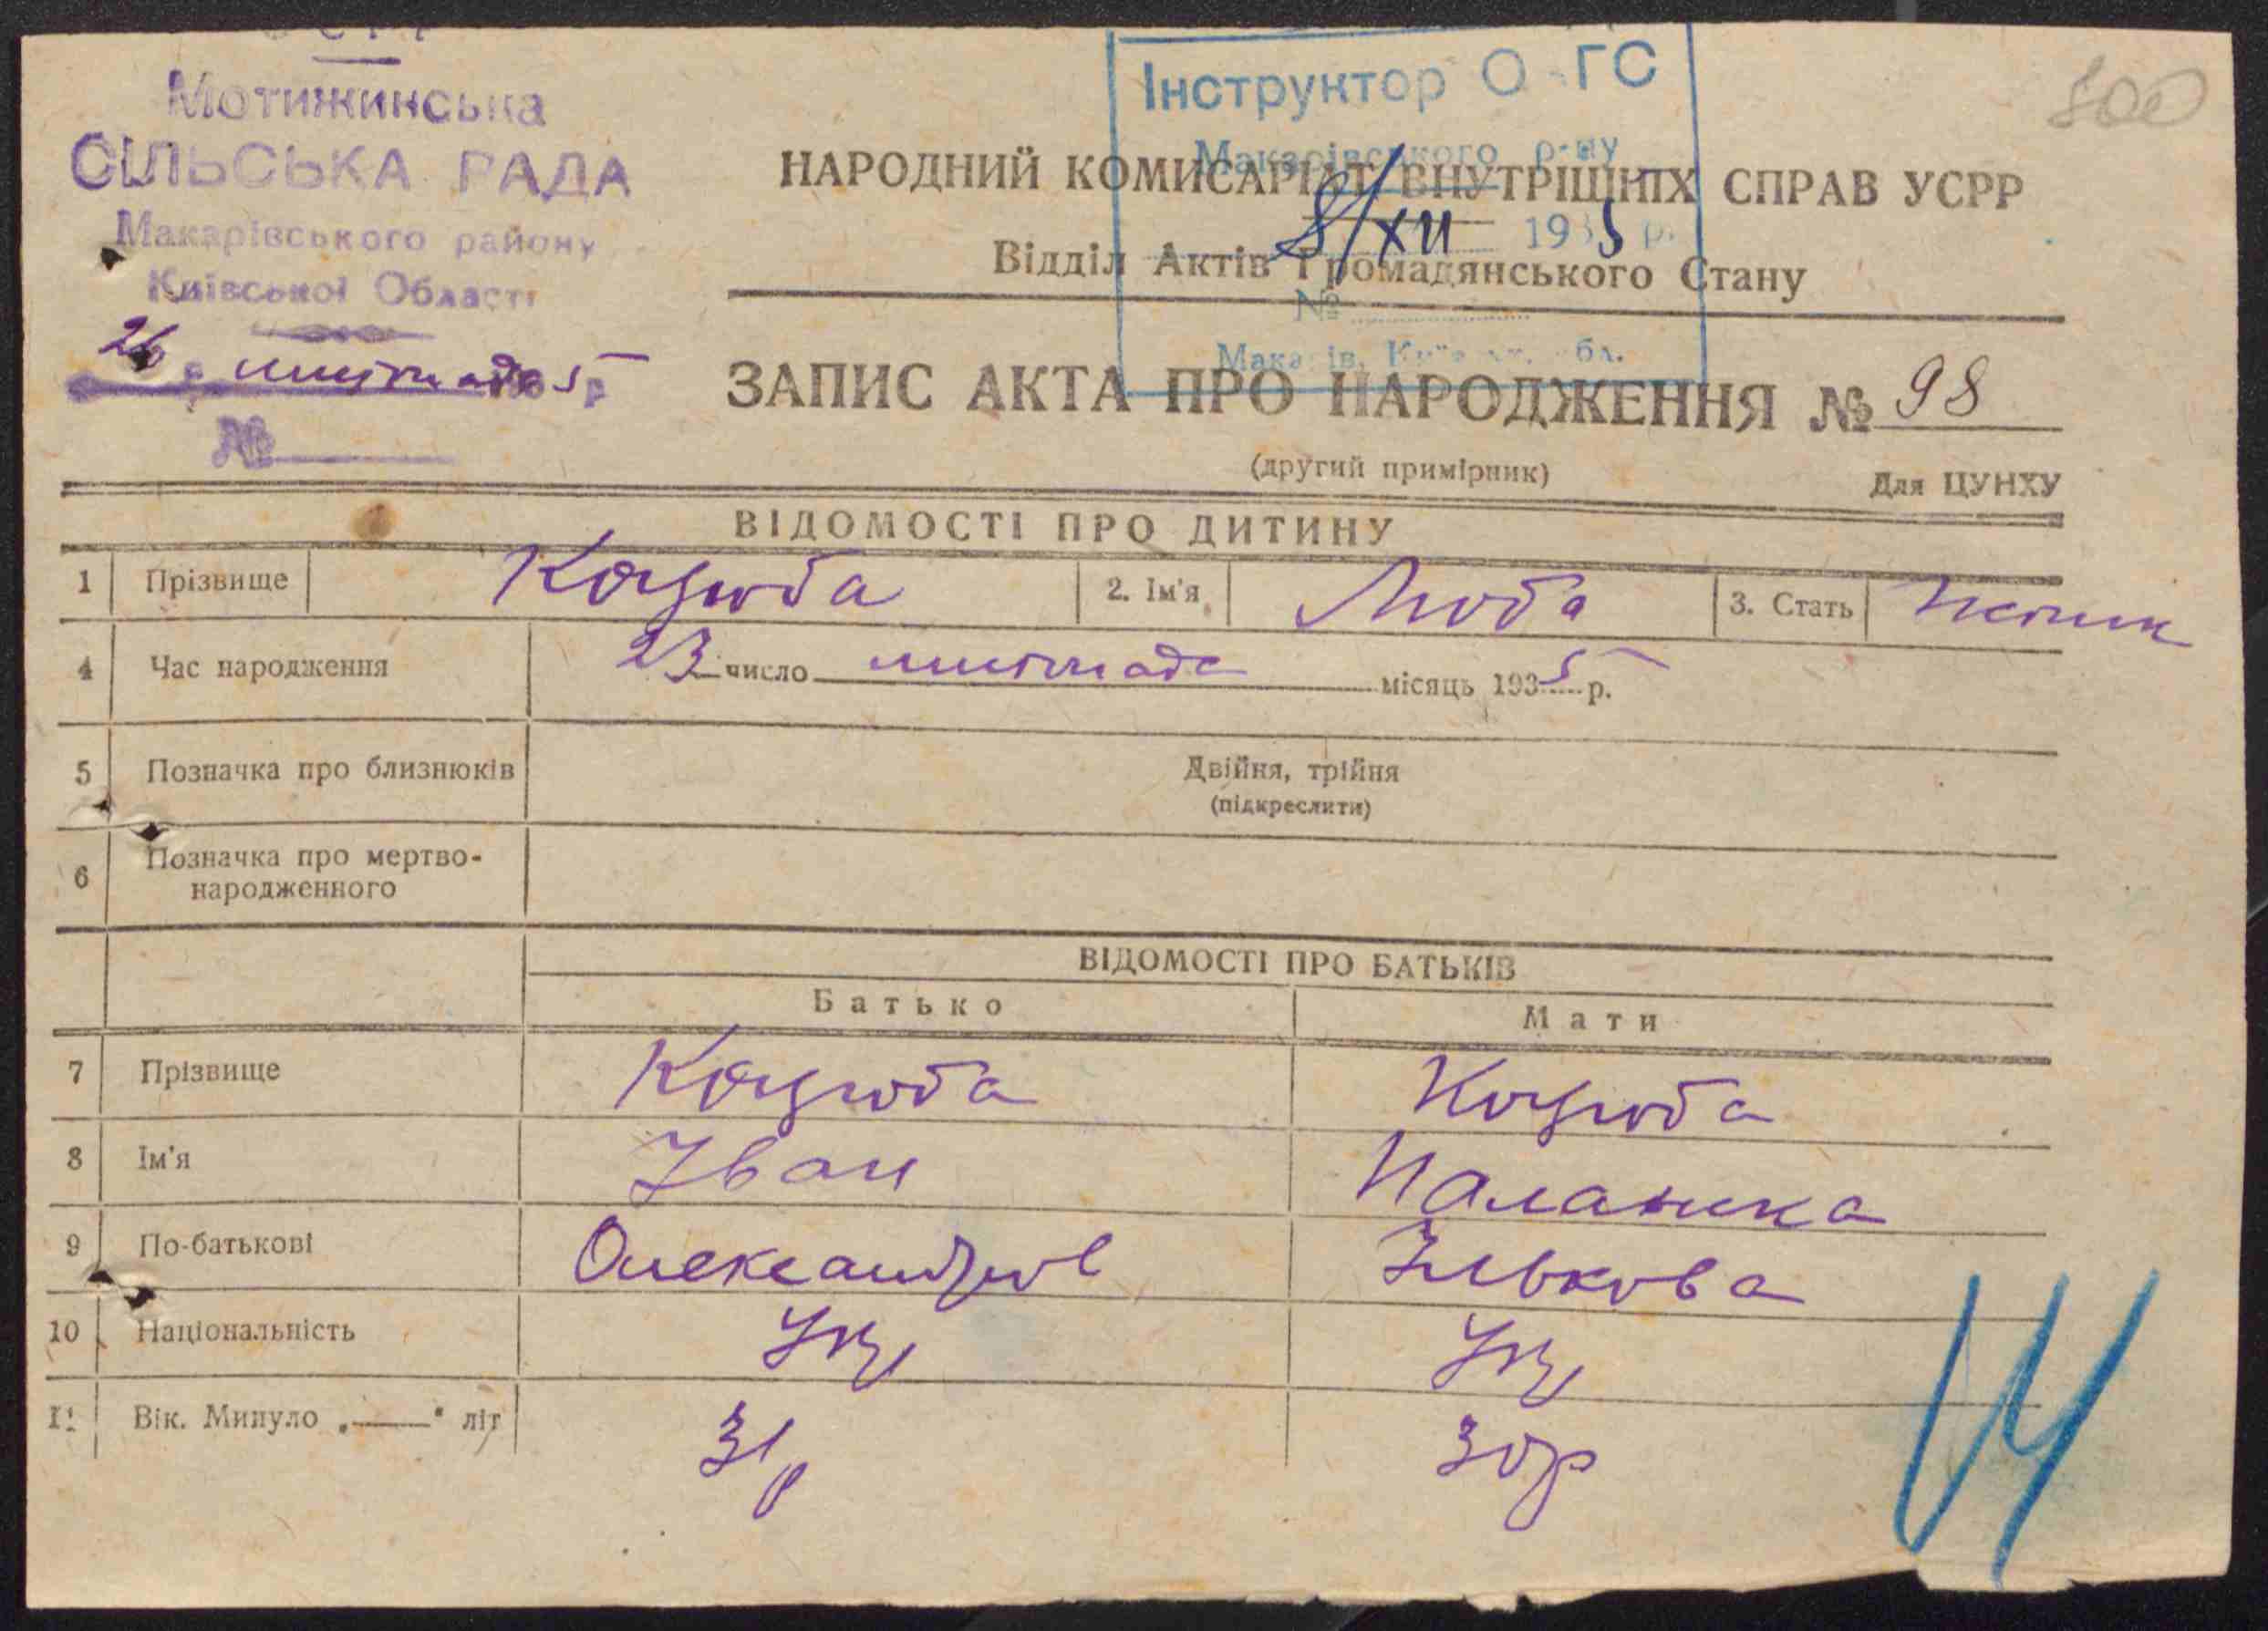 Мотижинська
СІЛЬСЬКА РАДА
Макарівського району
Київської Області
26 листопада 1935 р
№
Інструктор О ГС
Макарівського р-ну
8/XII 1935 р.
№
Макарів, Київськ. обл.
800
НАРОДНИЙ КОМИСАРІАТ ВНУТРІШНІХ СПРАВ УСРР
Відділ Актів Громадянського Стану
ЗАПИС АКТА ПРО НАРОДЖЕННЯ № 98
(другий примірник)
Для ЦУНХУ
ВІДОМОСТІ ПРО ДИТИНУ
1 Прізвище Коцюба 2. Ім'я Люба 3. Стать
4 Час народження 23 число листопада місяць 1935 р.
5 Позначка про близнюків Двійня, трійня
(підкреслити)
6 Позначка про мертво-
народженного
ВІДОМОСТІ ПРО БАТЬКІВ
Батько Мати
7 Прізвище Коцюба Коцюба
8 Ім'я Іван Палажка
9 По-батькові Олександров Ількова
10 Національність Укр Укр
11 Вік. Минуло „——" літ 31 р 30 р